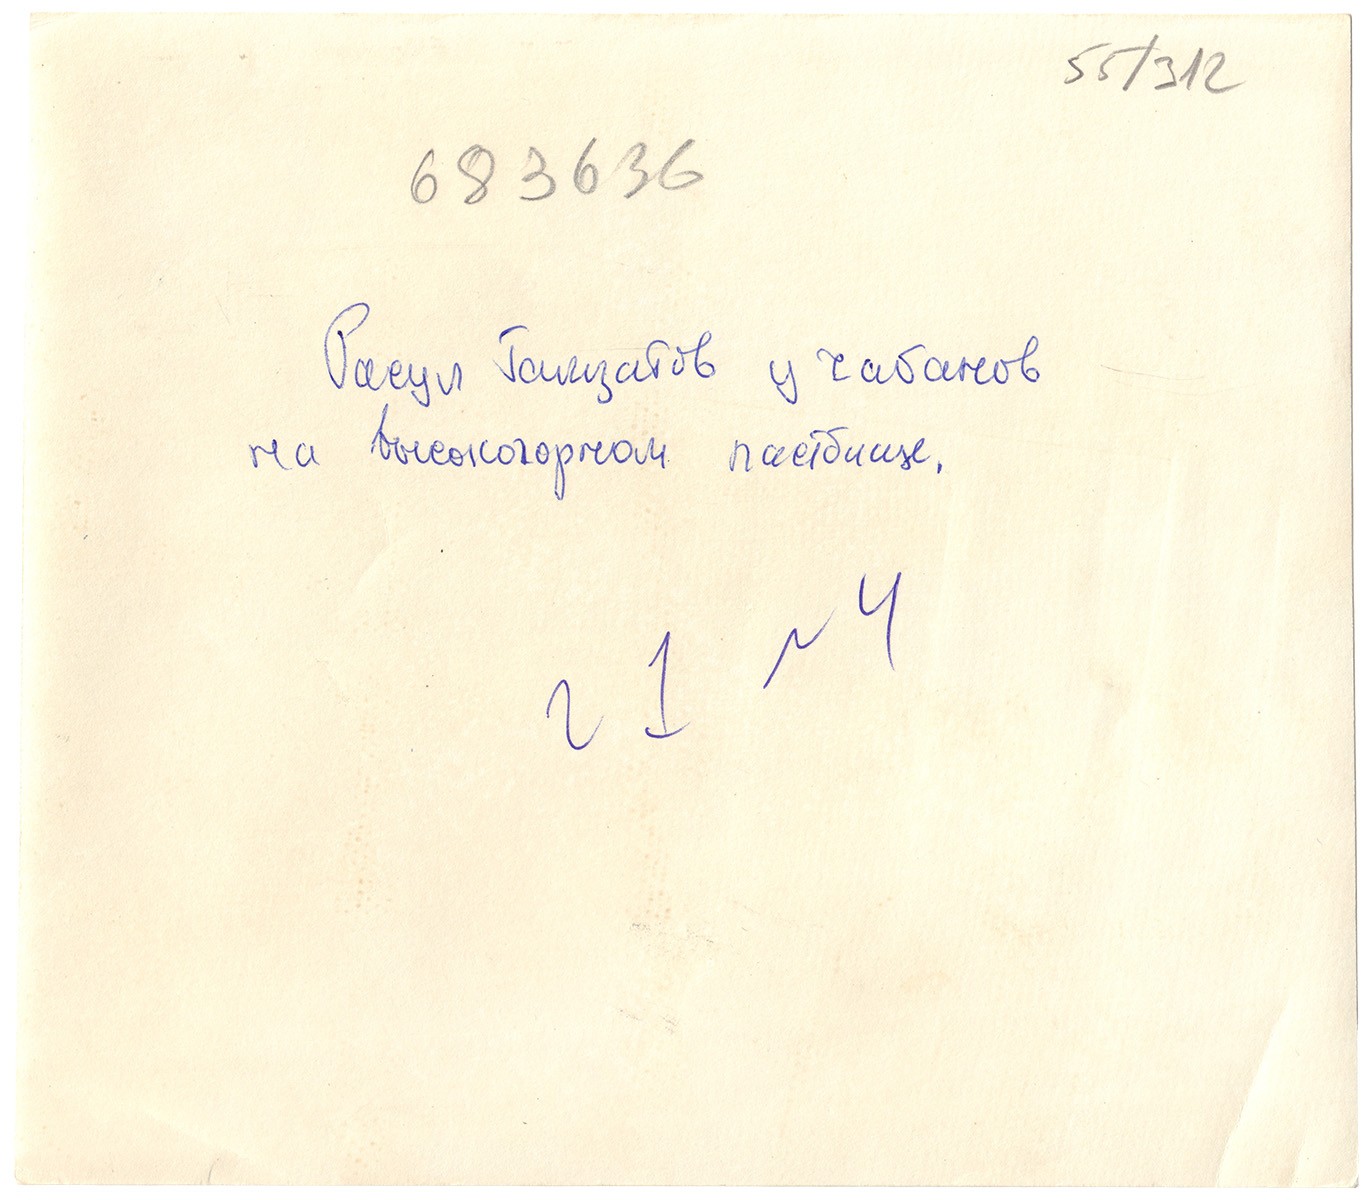 55/312
683636
Расул Гамзатов у чабанов
на высокогорном пастбище.
г 1 м 4